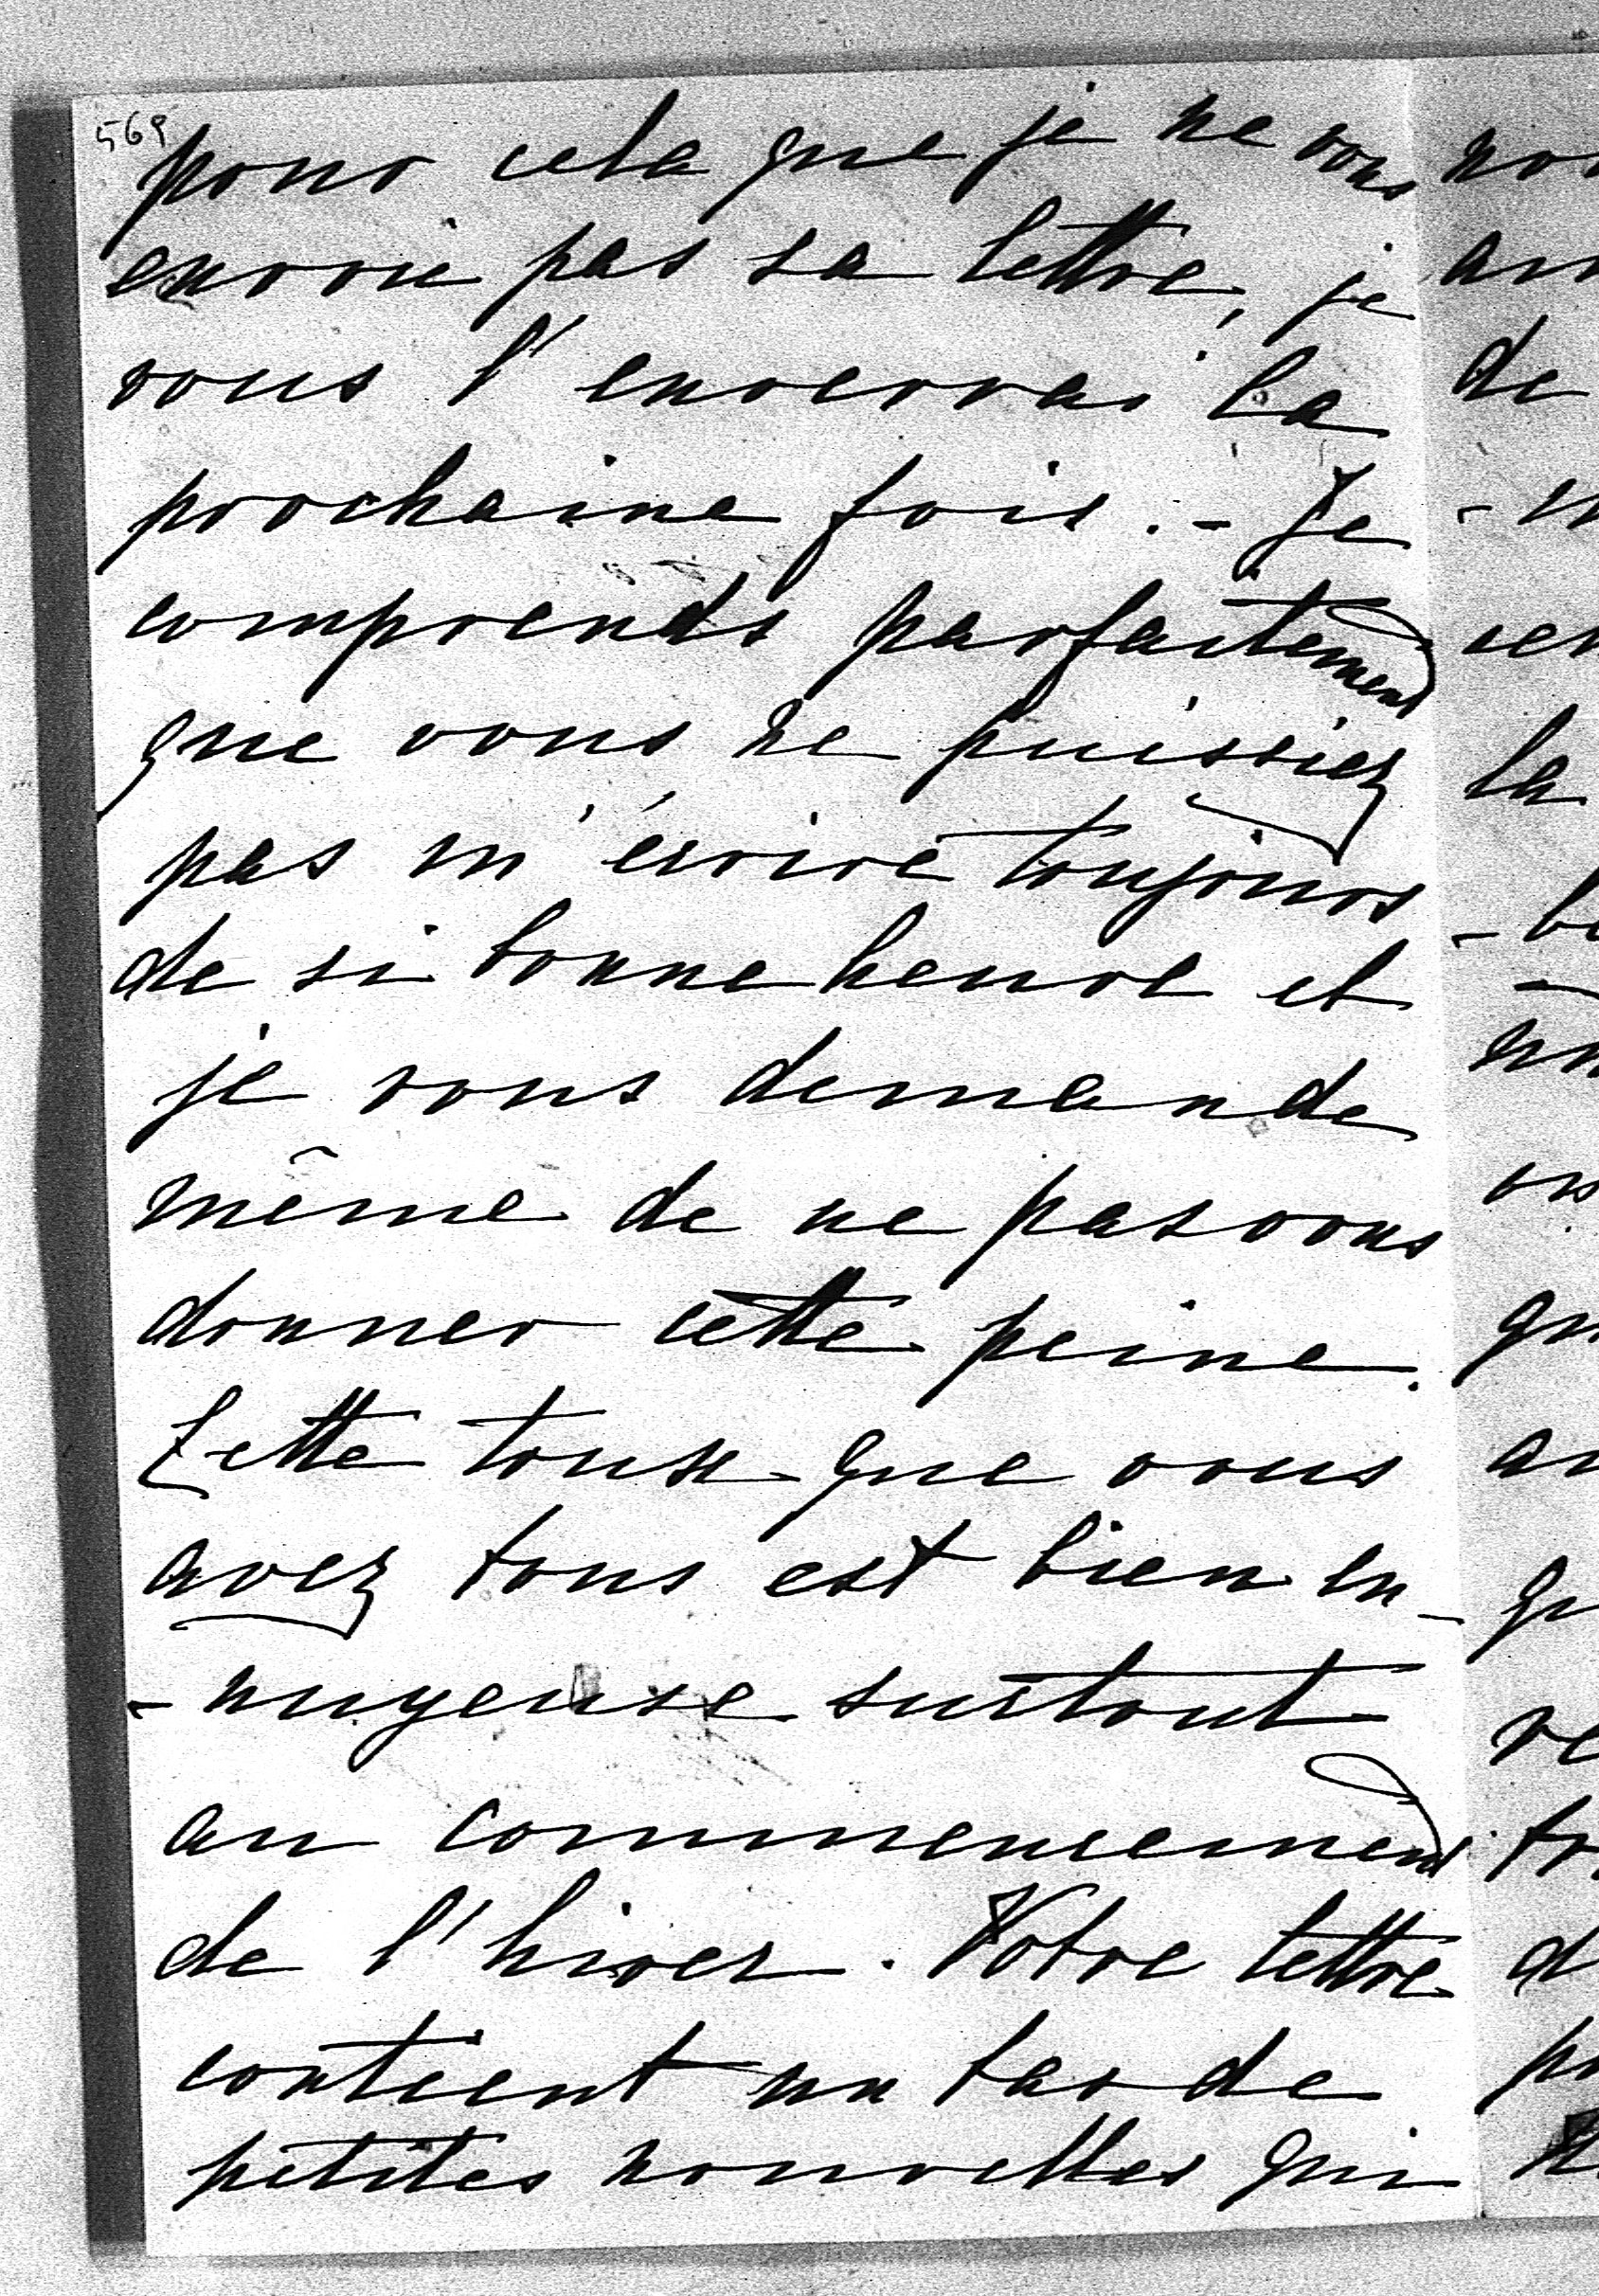 569
pour cela que je ne vous
envoie pas sa lettre, je
vous l'enverrai la
prochaine fois. - Je
comprends parfaitement
que vous ne puissiez
pas m'écrire toujours
de si bonne heure et
je vous demande
même de ne pas vous
donner cette peine.
Cette toux que vous
avez tous est bien en-
-nuyeuse surtout
au commencement
de l'hiver. Votre lettre
contient un tas de
petites nouvelles qui